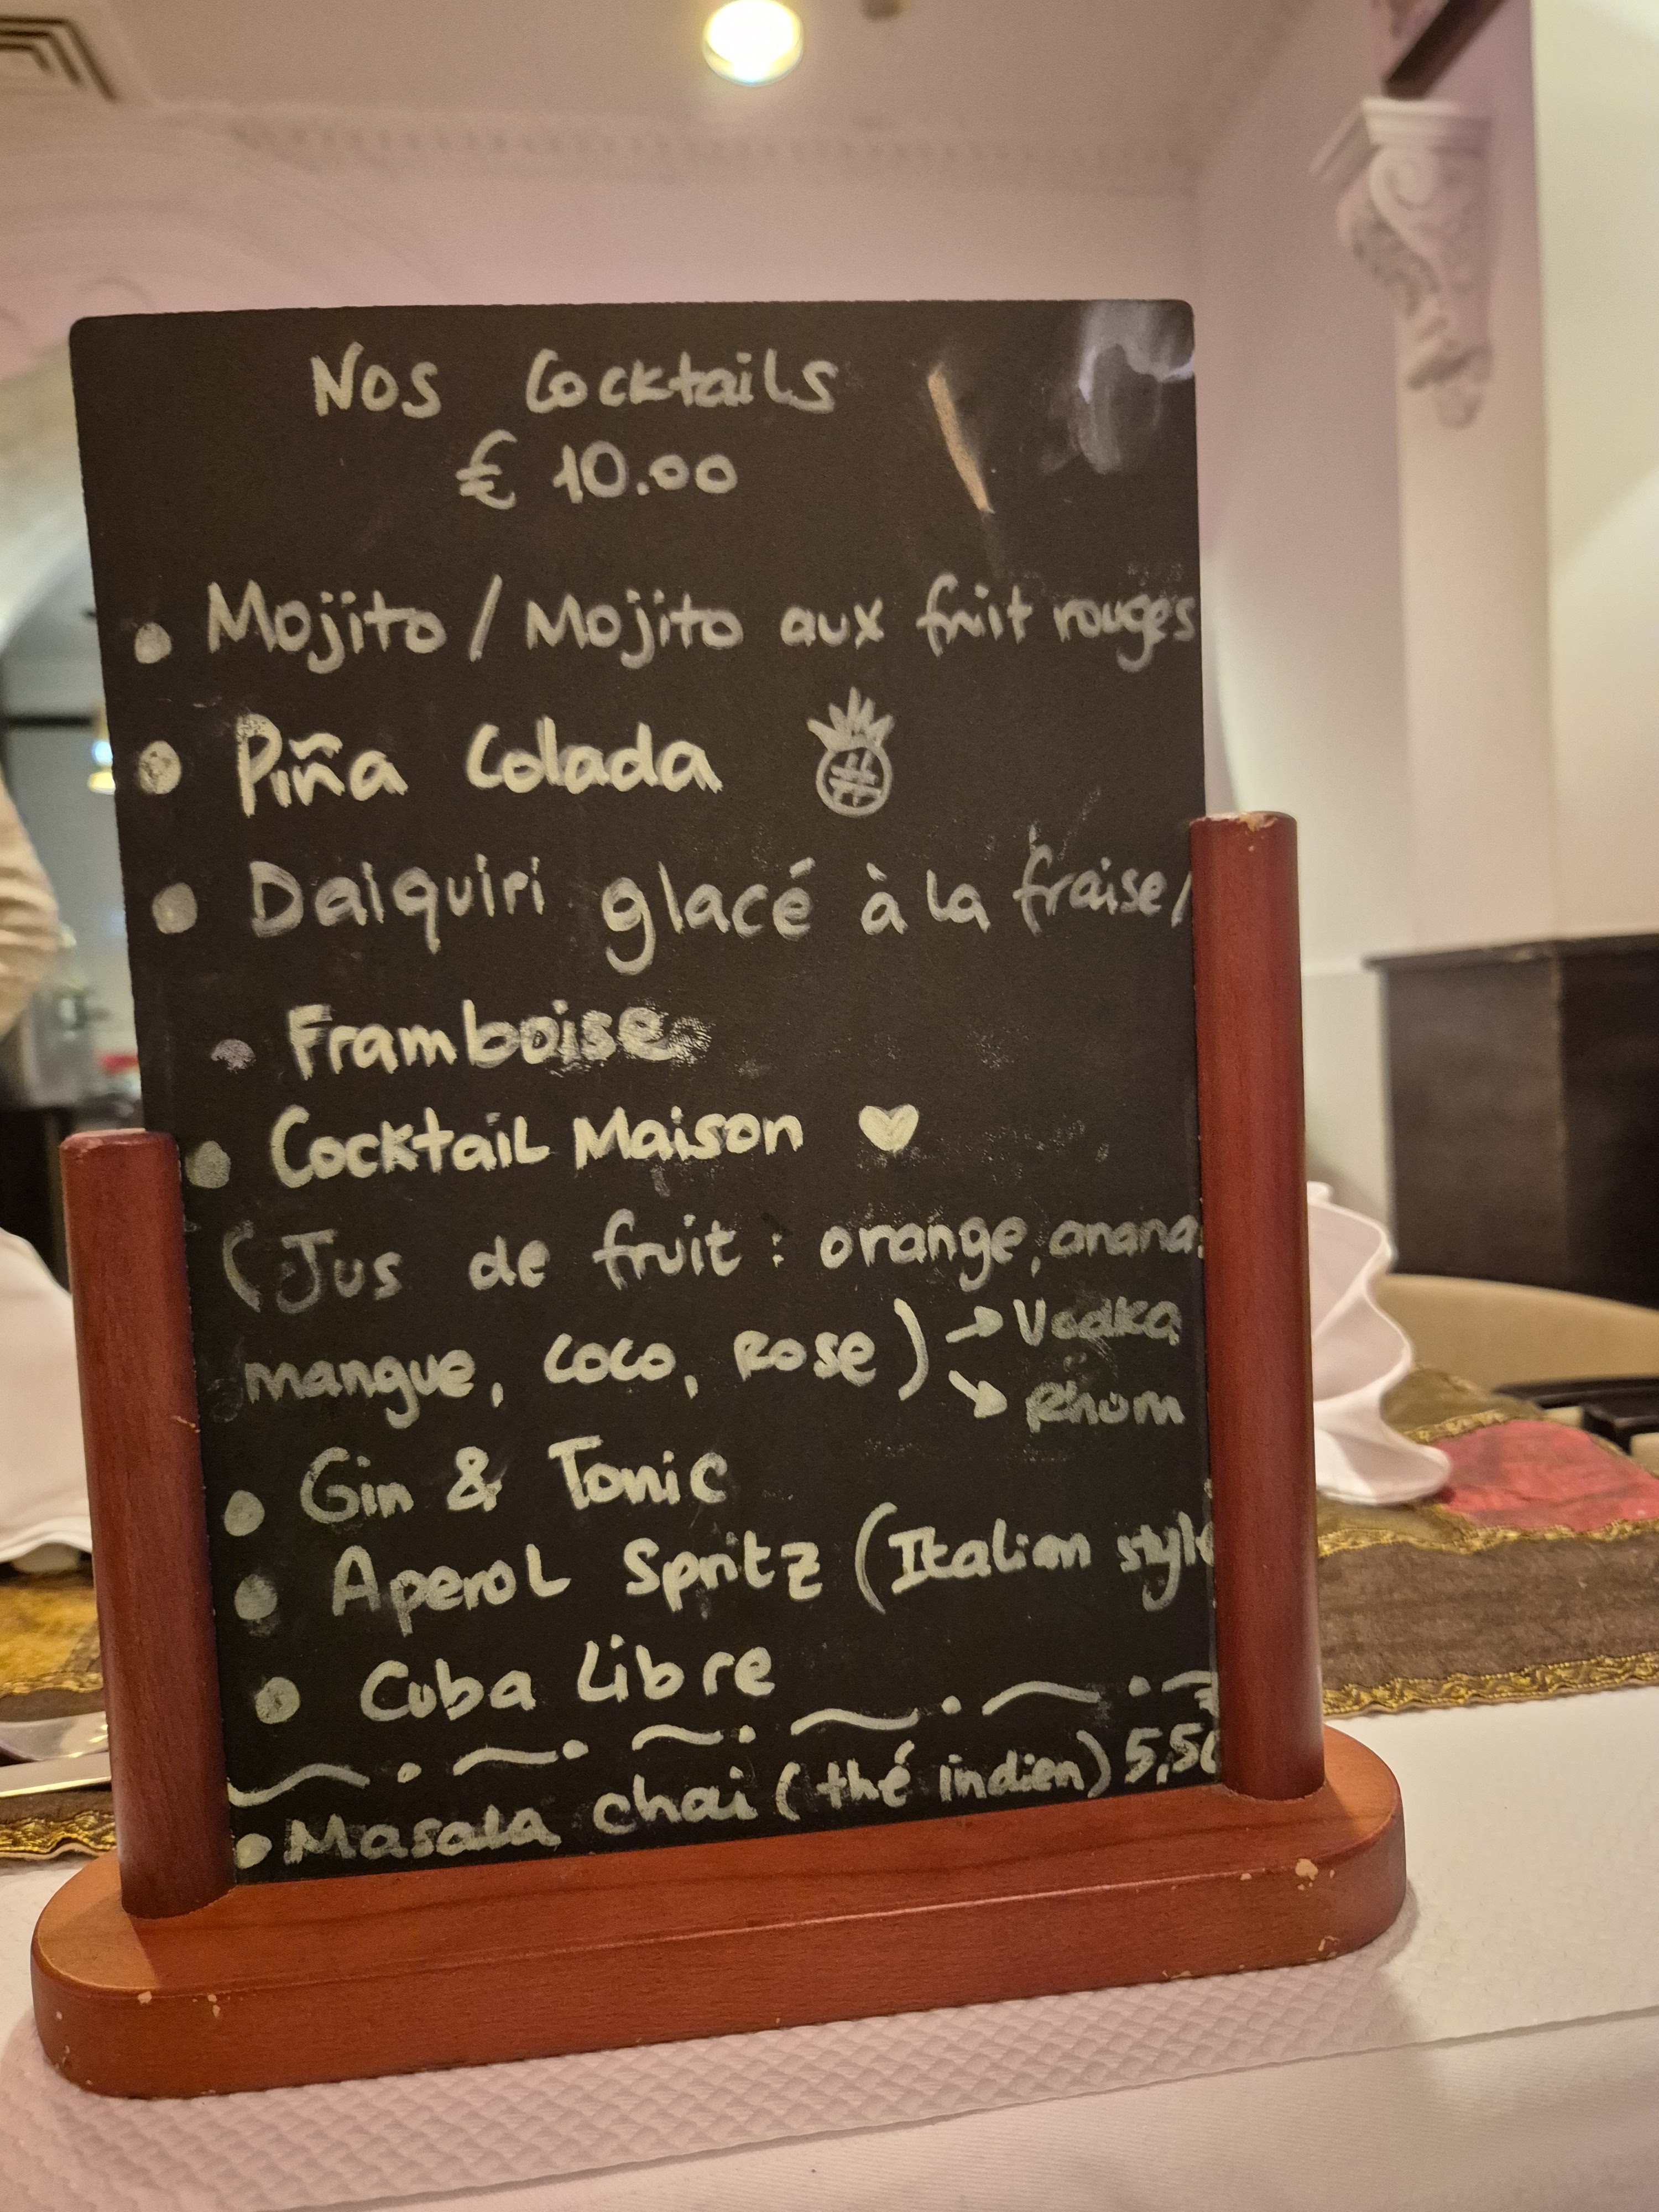 Nos Cocktails
€ 10.00
• Mojito / Mojito aux fruit rouges
• Piña Colada
• Daiquiri glacé à la fraise /
• Framboise
• Cocktail Maison ♥
(Jus de fruit : orange, anana
mangue, coco, Rose) → Vodka
↘ Rhum
• Gin & Tonic
• Aperol Spritz (Italian style
• Cuba Libre
• Masala chai (thé indien) 5,5